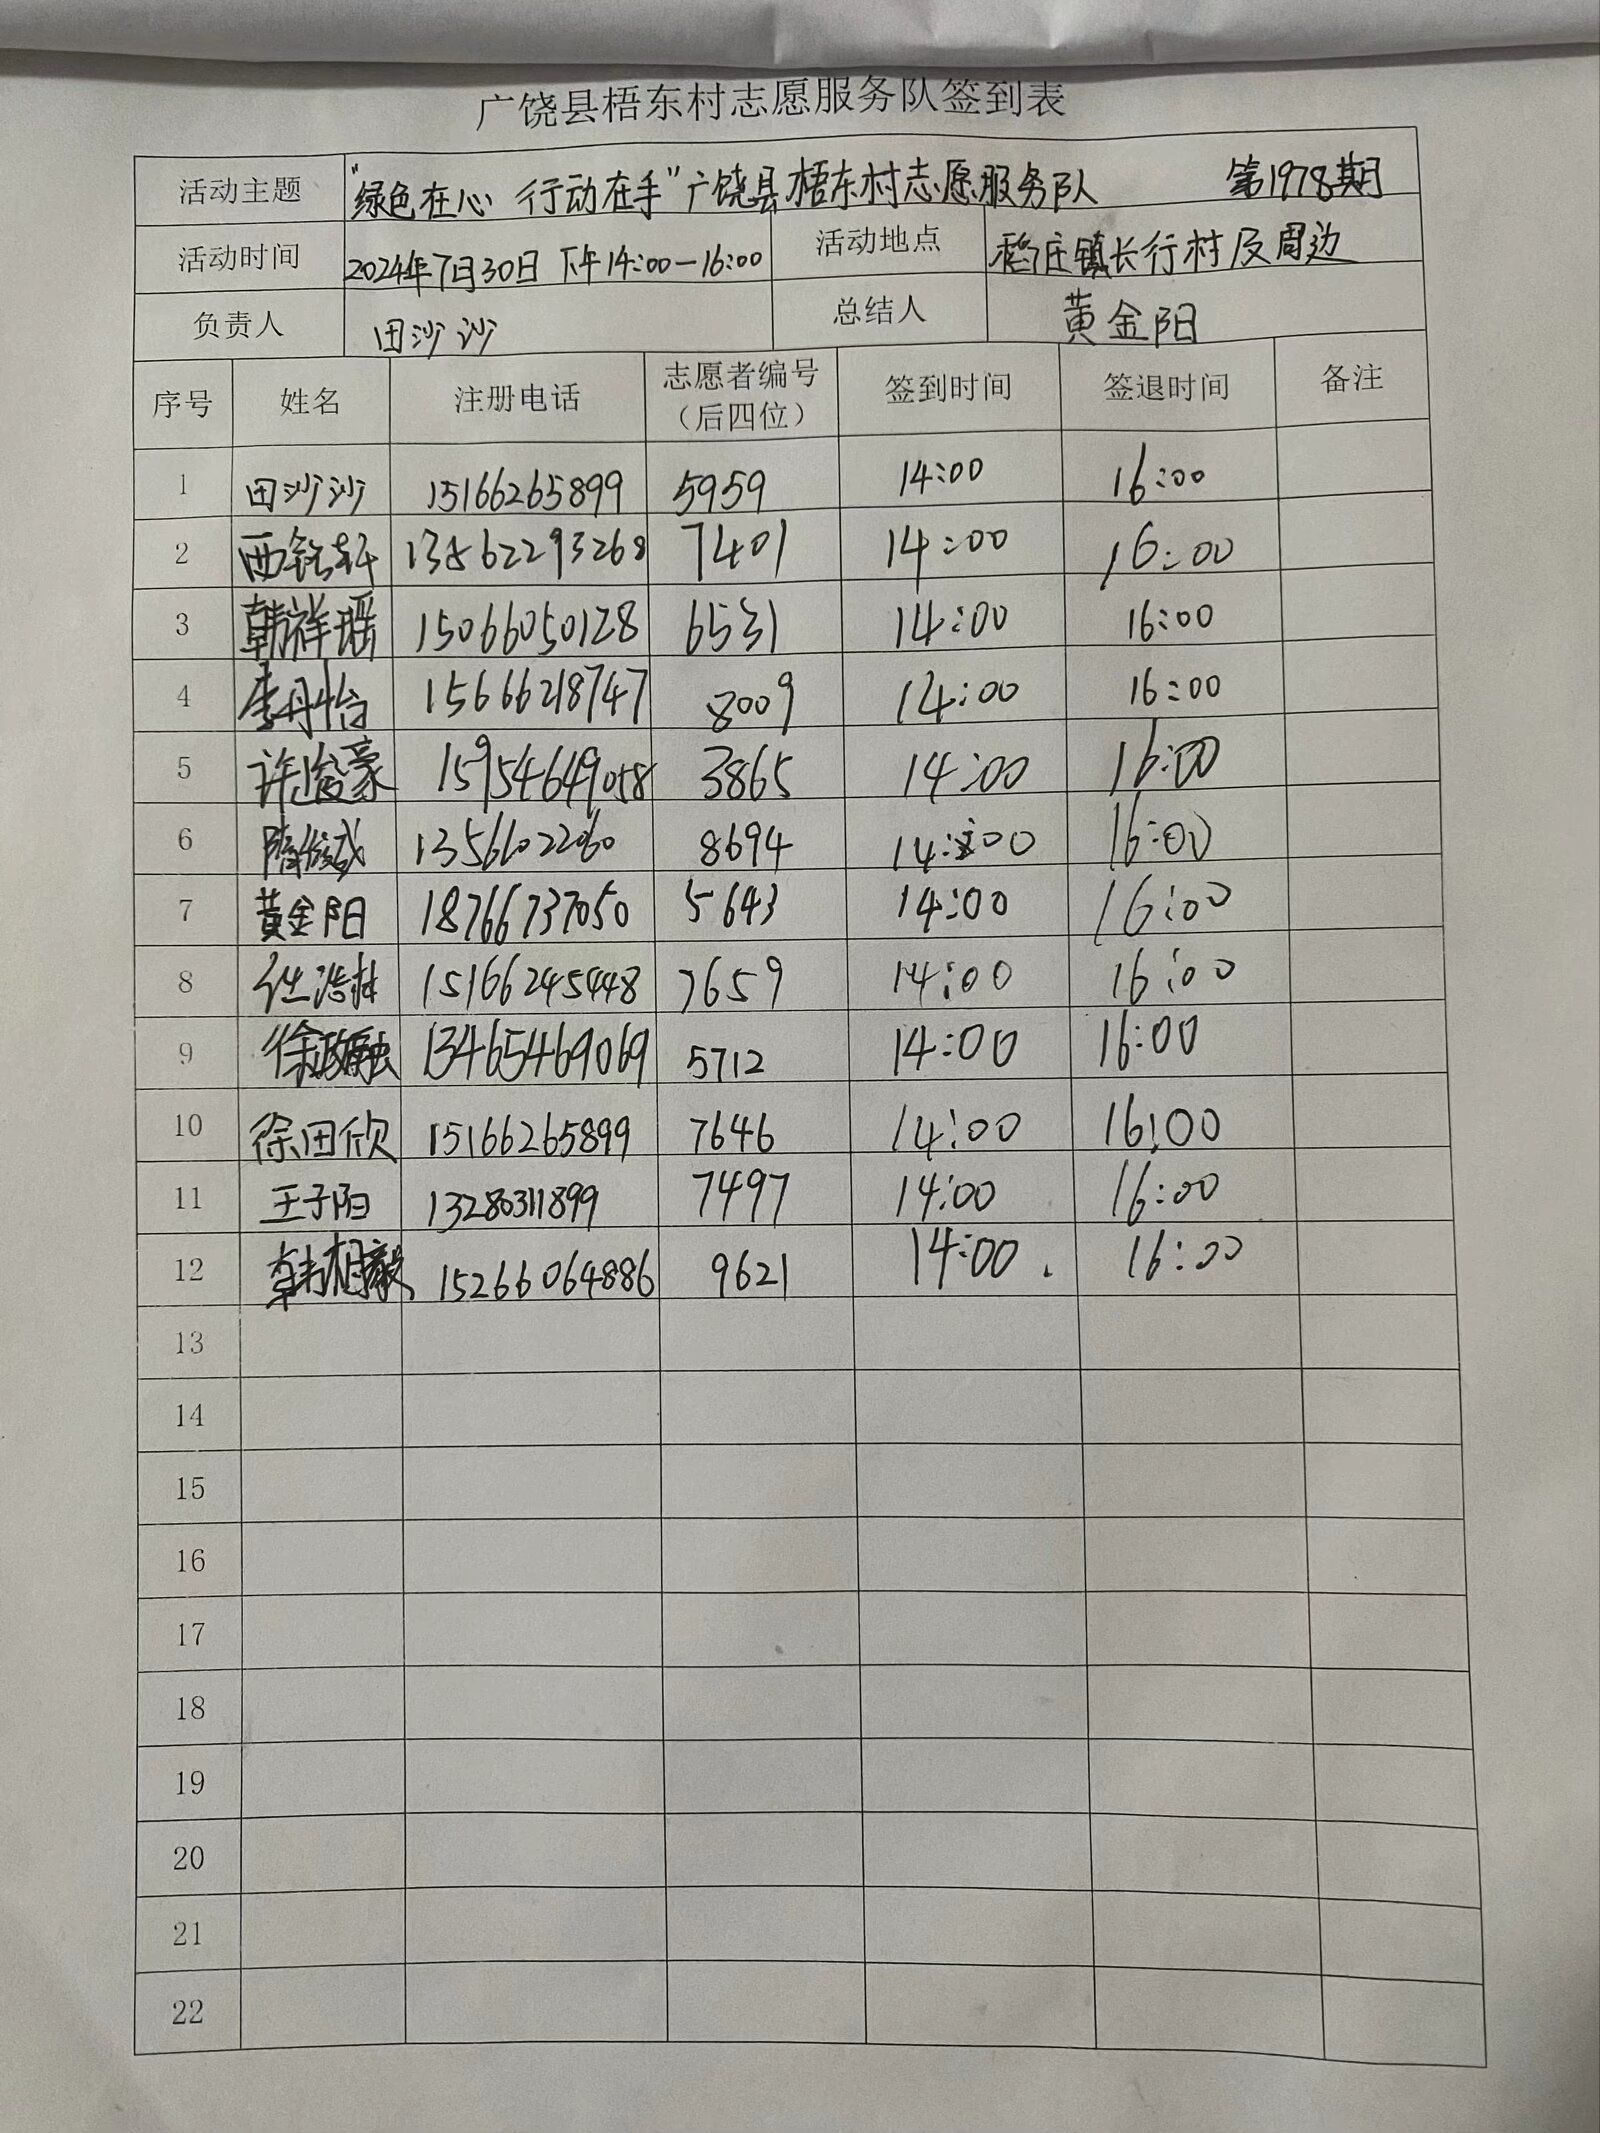 广饶县梧东村志愿服务队签到表
活动主题 "绿色在心 行动在手"广饶县梧东村志愿服务队 第1978期
活动时间 2024年7月30日 下午14:00—16:00 活动地点 稻庄镇长行村及周边
负责人 田沙沙 总结人 黄金阳
序号 姓名 注册电话 志愿者编号（后四位） 签到时间 签退时间 备注
1 田沙沙 15166265899 5959 14:00 16:00
2 西铭轩 13562293268 7401 14:00 16:00
3 韩祥瑶 15066050128 6531 14:00 16:00
4 李丹怡 15666218747 8009 14:00 16:00
5 许逸豪 15954649058 3865 14:00 16:00
6 隋俊成 13566022060 8694 14:00 16:00
7 黄金阳 18766737050 5643 14:00 16:00
8 任浩林 15166245448 7659 14:00 16:00
9 徐政融 13465469069 5712 14:00 16:00
10 徐田欣 15166265899 7646 14:00 16:00
11 王子阳 13280311899 7497 14:00 16:00
12 韩相毅 15266064886 9621 14:00 16:00
13
14
15
16
17
18
19
20
21
22